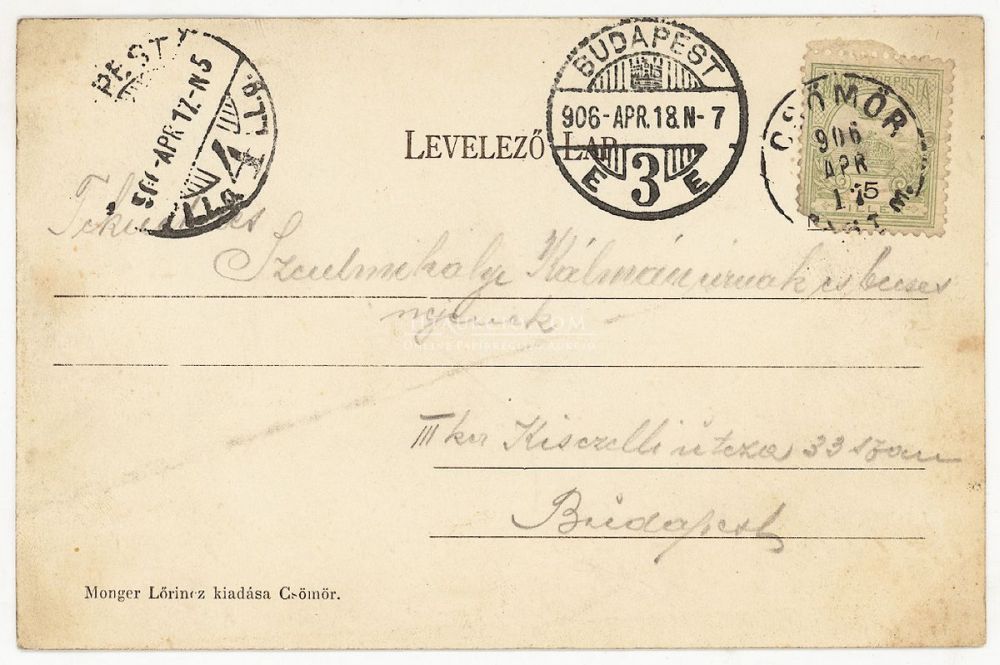 PEST
906-APR.17.-N5
4
BUDAPEST
906-APR.18.N-7
3
E E
CSÖMÖR
906
APR
17
POSTA
5
LEVELEZŐ LAP
Tekintetes
Szentmihalyi Kálmán urnak és kedves
nejenek
III ker Kisczelli útcza 33 szam
Budapest
Monger Lőrincz kiadása Csömör.